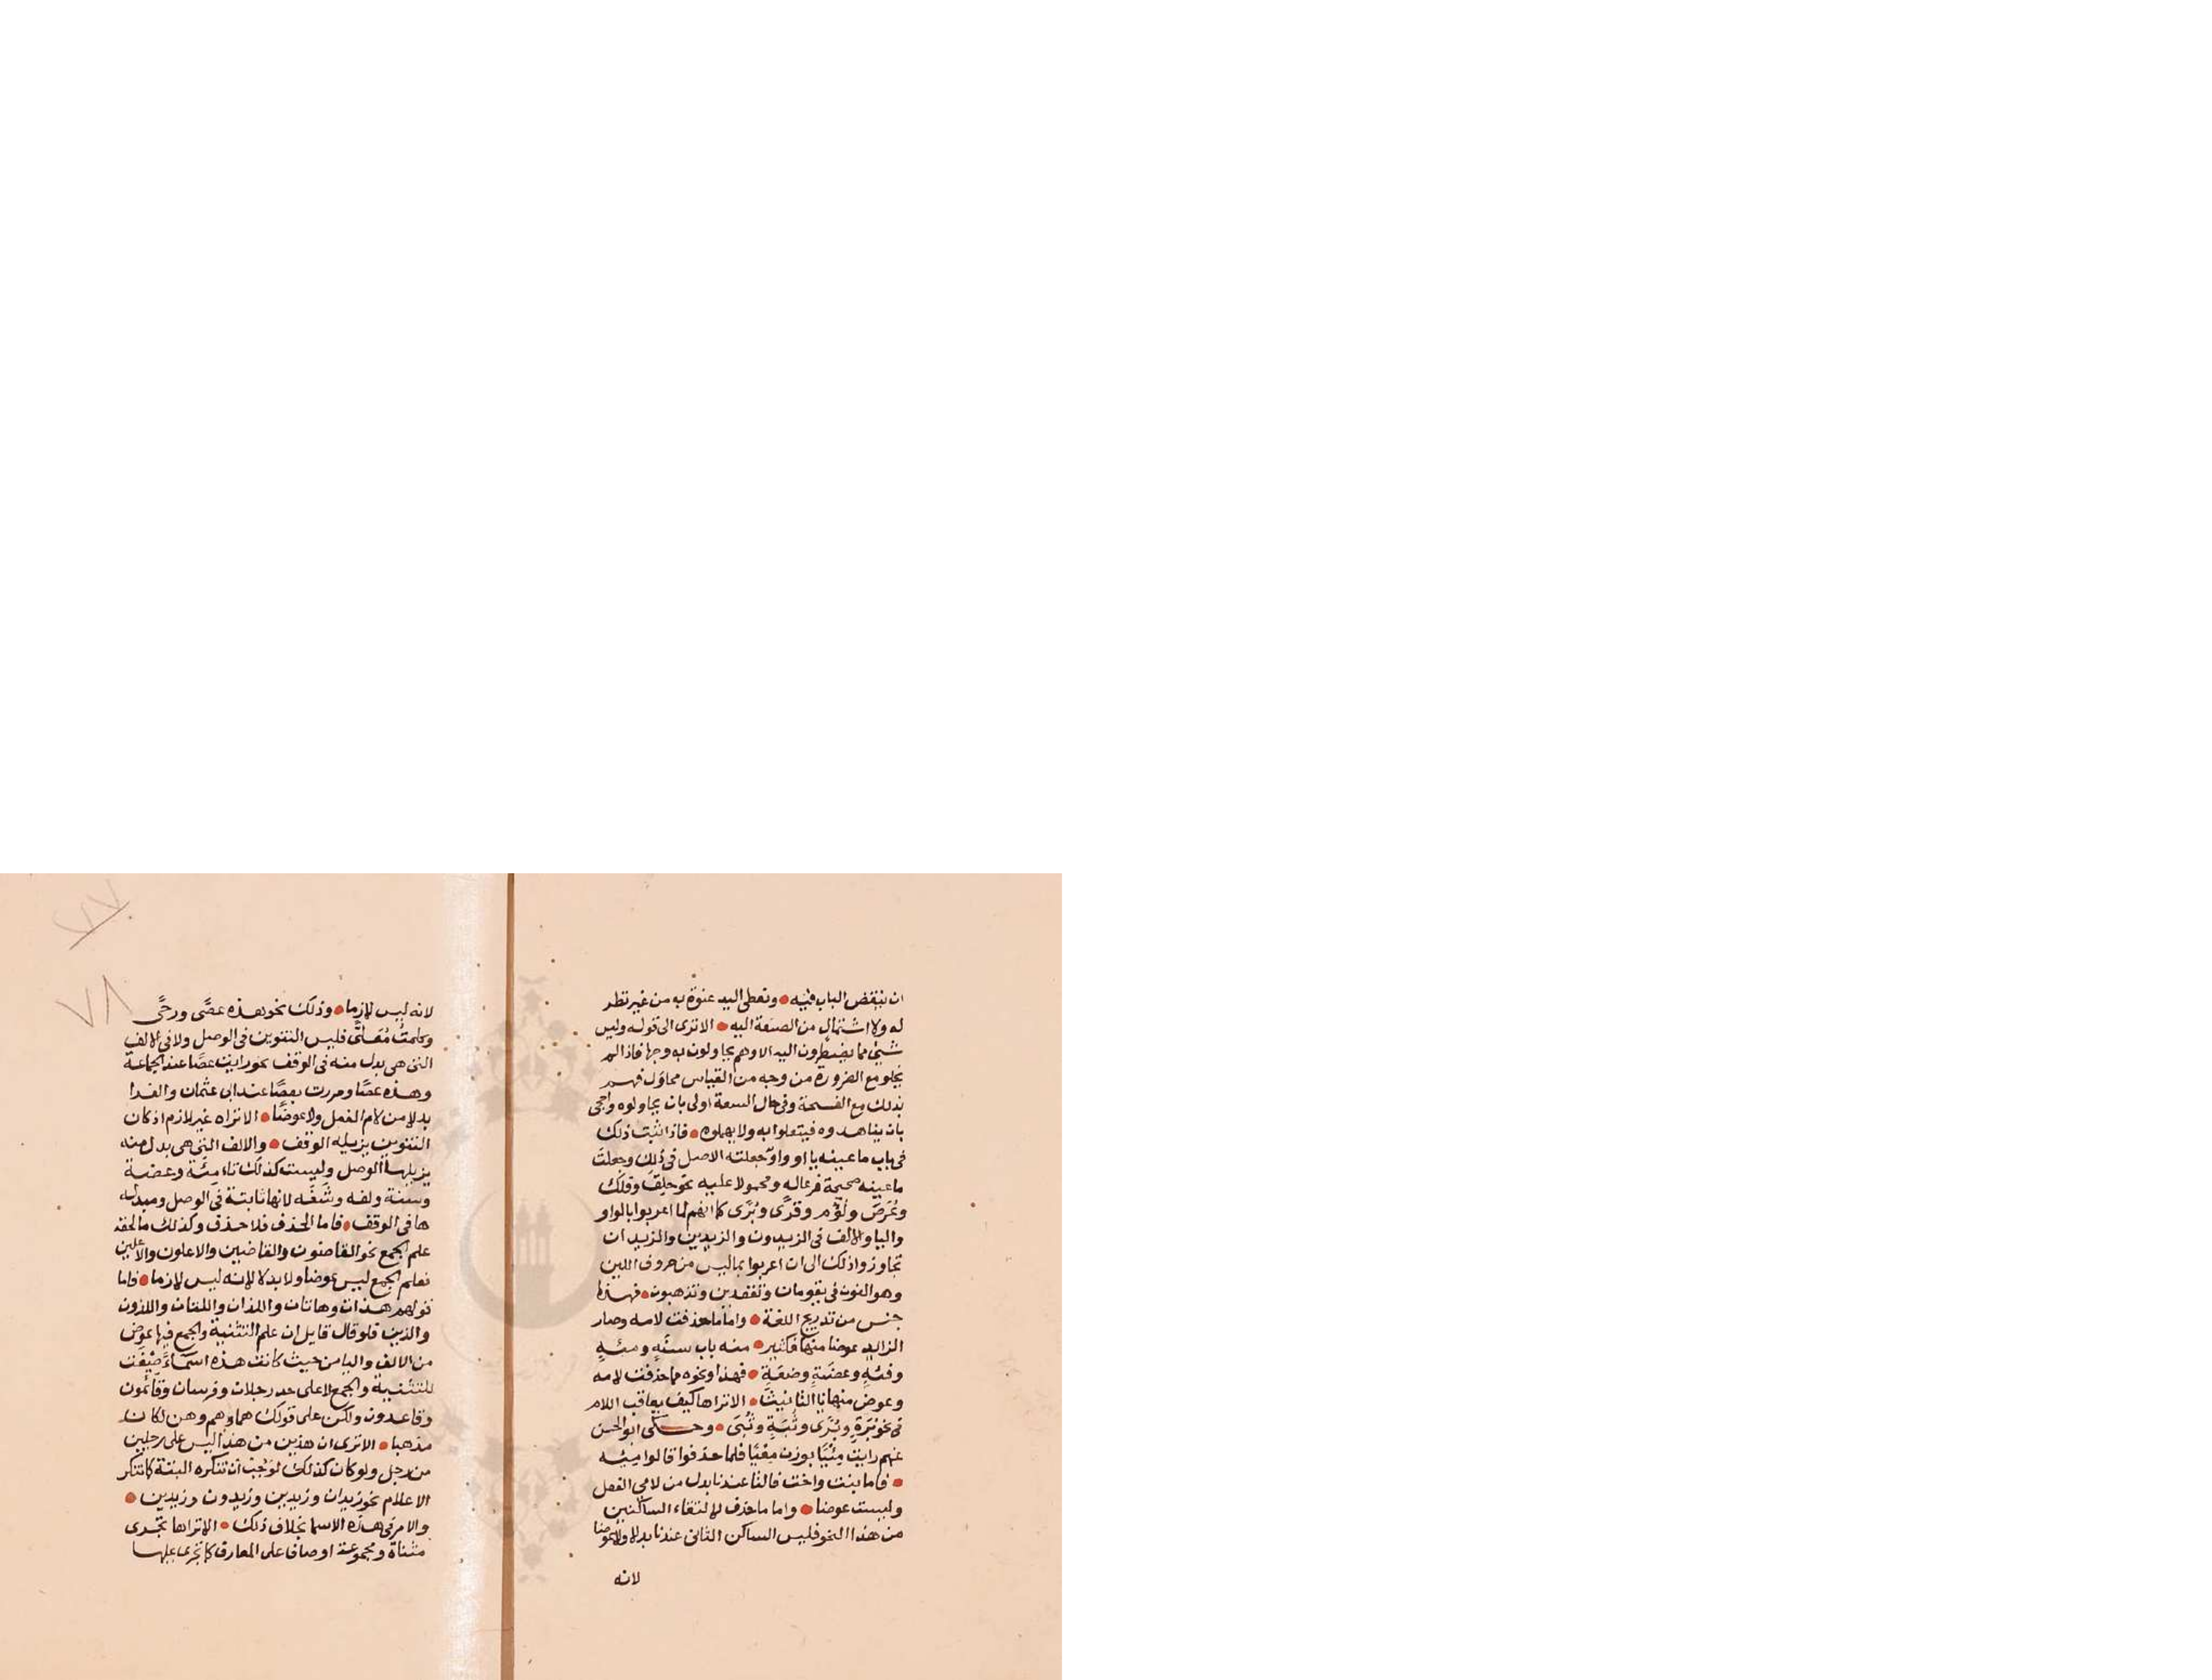 ان ينتقض الباب فيه • وتعطى اليد عنوة به من غير نظر
له ولا اشتمال من الصنعة اليه • الا ترى الى قوله وليس
شيئ مما يضطرون اليه الا وهم يحاولون به وجها فاذا لم
يخلو مع الضرورة من وجه من القياس محاول فهم
بذلك مع الفسحة وفي حال السعة اولى بان يحاولوه واحجى
بان يناهدوه فيتعلوا به ولا يهملوه • فاذا ثبت ذلك
في باب ما عينه يا او واو جعلته الاصل في ذلك وجعلت
ما عينه صحيحة فرعا له ومحمولا عليه نحو حلق وفلك
وعرص ولؤم وقرى وبرى كما انهم لما اعربوا بالواو
واليا والالف في الزيدون والزيدين والزيدان
تجاوزوا ذلك الى ان اعربوا بما ليس من حروف اللين
وهو النون في يقومان وتقعدين وتذهبون • فهذا
جنس من تدريج اللغة • واما ما حذفت لامه وصار
الزايد عوضا منها فكثير • منه باب سنة ومئة
وفئة وعضة وضعة • فهذا ونحوه مما حذفت لامه
وعوض منها تا التانيث • الا تراها كيف يعاقب اللام
في نحو برة وبرى وثبة وثبى • وحكى ابو الحسن
عنهم رايت مئيا بوزن معيا فلما حذفوا قالوا مئه
• فاما بنت واخت فالتا عندنا بدل من لامي الفعل
وليست عوضا • واما ما حذف لالتقاء الساكنين
من هذا النحو فليس الساكن الثاني عندنا بدلا ولا عوضا
لانه
٧٨
لانه ليس لازما • وذلك نحو هذه عصى ورحى
وكلمت معلى فليس التنوين في الوصل ولا في الالف
التي هي بدل منه في الوقف نحو رايت عصا عند الجماعة
وهذه عصا ومررت بعصا عند ابى عثمان والفرا
بدلا من لام الفعل ولا عوضا • الا تراه غير لازم اذ كان
التنوين يزيله الوقف • والالف التي هي بدل منه
يزيلها الوصل وليست كذلك تاء مئة وعضة
وسنة ولغه وشفه لانها ثابتة في الوصل ومبدله
ها في الوقف • فاما الحذف فلا حذف وكذلك ما لحقه
علم الجمع نحو القاضون والقاضين والاعلون والاعلين
فعلم الجمع ليس عوضا ولا بدلا لانه ليس لازما • فاما
قولهم هذان وهاتان واللذان واللتان واللذون
والذين فلو قال قايل ان علم التثنية والجمع فيها عوض
من الالف واليا من حيث كانت هذه اسماء صيغت
للتثنية والجمع لا على حد رجلان وفرسان وقائمون
وقاعدون ولكن على قولك هما وهم وهن لكان
مذهبا • الا ترى ان هذين من هذا ليس على رجلين
من رجل ولو كان كذلك لوجب ان تنكره البتة كما تنكر
الاعلام نحو زيدان وزيدين وزيدون وزيدين •
والامر في هذه الاسما بخلاف ذلك • الا تراها تجرى
مثناة ومجموعة اوصافا على المعارف كما تجرى عليها